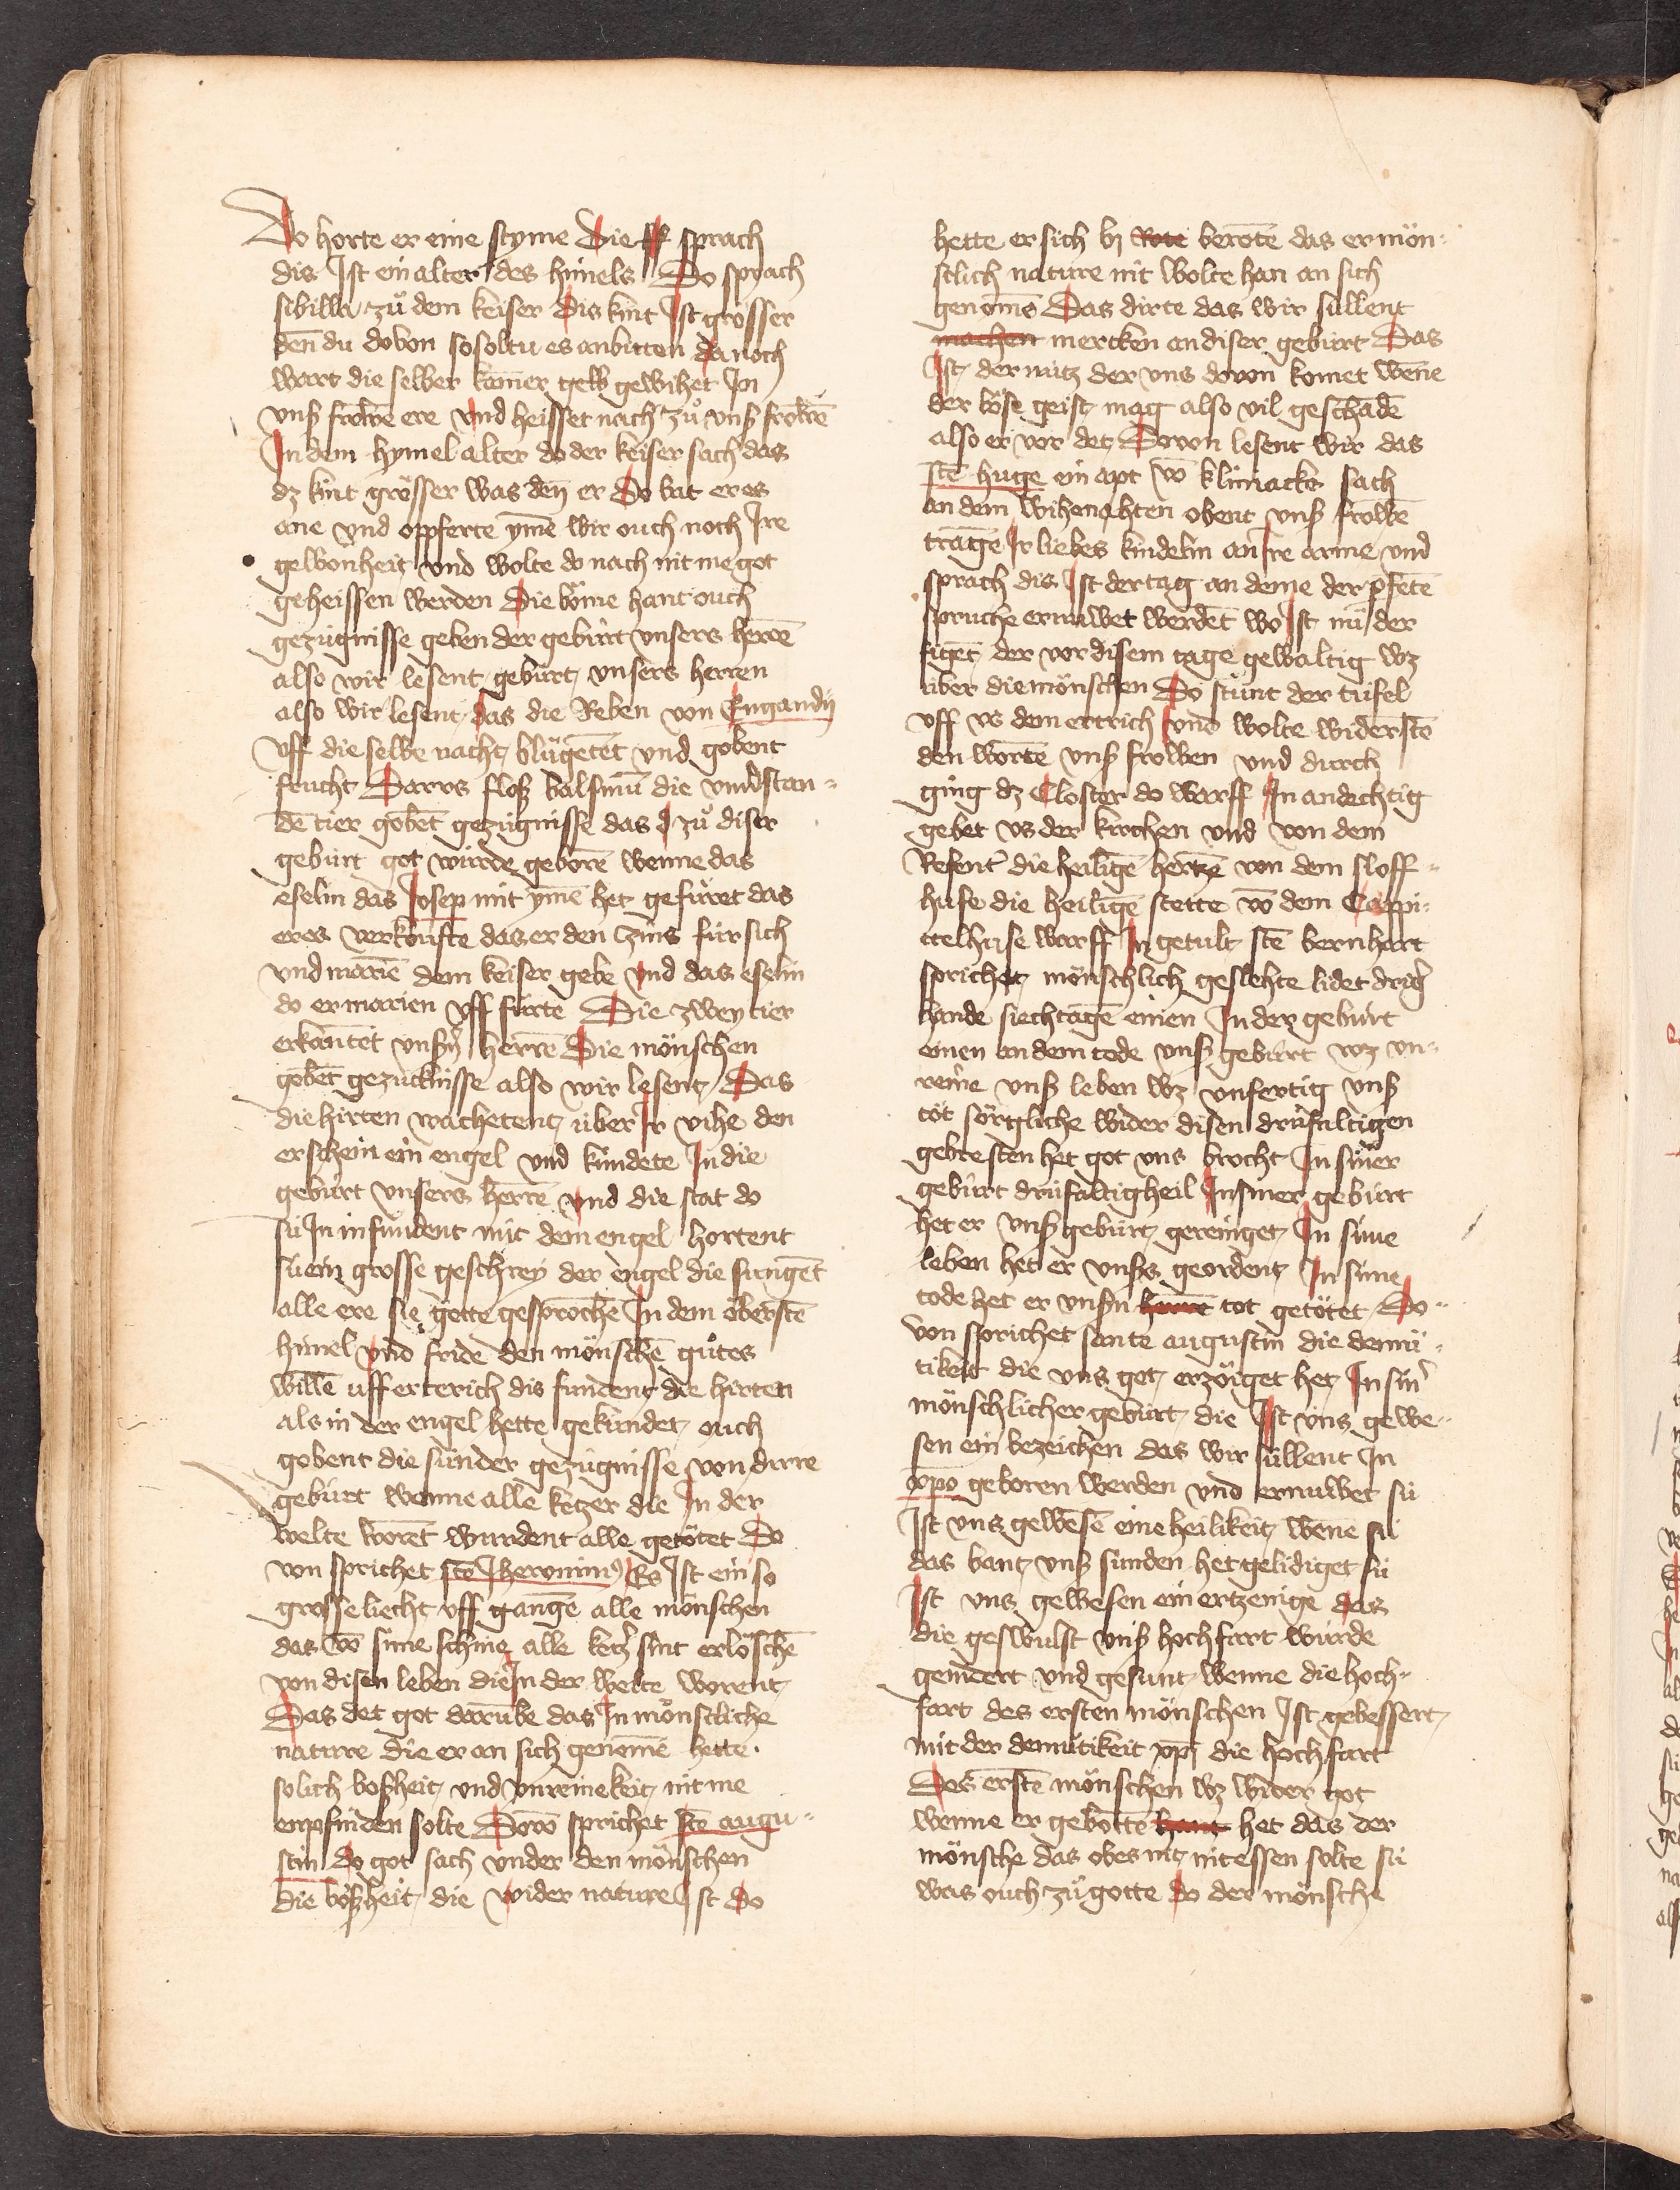 Do horte er eine styme Die sprach
dis Ist ein alter des himels Do sprach
sibilla zů dem keiser Dis kint Ist grosser
den̄ du dovon so soltu es anbitten da noch
wart die selber kamer gewihet In
vnß frowē ere vnd heisset nach zů vnß frowē
In dem hymel alter do der keiser sach das
dz kint grösser was den̄ er Do bat er es
ane vnd oppferte ymē wir ouch noch Ire
gewonheit vnd wolte do nach nit me got
geheissen werden Die böme hant ouch
gezügnisse geben der gebürt vnsers herrē
also wir lesent gebürt vnsers herren
also wir lesent das die Reben von Engandy
vff die selbe nacht blügetēt vnd gobent
frucht Darvs floß balsmū die vnuerstan-
dē tier gobēt gezügnisse das zů diser
gebürt got würde geborē wenne das
eselin das Josep mit ymē het gefüret das
er es verkoufte das er den zins für sich
vnd mariē dem keiser gebe vnd das eselin
do er marien vff fürte Die zwey tier
erkantēt vnsern herrē Die mönschen
gobēt gezücknisse also wir lesent Das
die hirten wachetent über Ir vihe den
erschein ein engel vnd kündete In die
gebürt vnsers herrē vnd die stat do
sü In infundent mit dem engel hortent
sü ein grosse geschrey der engel die sungēt
alle ere sie gotte gesprochē In dem öberstē
himel vnd fride den mönschē gůtes
willē uff erterich dis fundent die hirten
als in der engel hette gekündet ouch
gobent die sünder gezügnisse von dirre
gebürt wenne alle ketzer die In der
welte worēt wurdent alle getötet Do
von sprichet stē Jheronim9 Es Ist ein so
grosse liecht vff gangē alle mönschen
das vō sime schine alle ketz̄ sint erlöschē
von disen leben die In der welte worent
Das det got darūbe das In mönschliche
nature die er an sich genomē hette
solich boßheit vnd vnreinekeit nit me
empfinden solte Dovō sprichet stē augu-
stin do got sach vnder den mönschen
die boßheit die wider nature Ist do
hette er sich by berotē das er mön-
schlich nature nit wolte han an sich
genomē Das dirte das wir süllent
machen mercken an diser gebürt Das
Ist der nütz der vns dovon komet wēne
der böse geist mag also vil geschadē
also er vor det Dovon lesent wir das
stē huge ein apt vō klimacke sach
an dem wihenahten obent vnß frowē
tragē Ir liebes kindelin an Ire arme vnd
sprach dis Ist der tag an deme der pfetē
spruche ernuwet werdēt wo Ist nū der
figēt der vor disem tage gewaltig wz
über die mönschen Do stünt der tüfel
vff vs dem ertrich vnd wolte widerstē
den wortē vnß frowen vnd durch
ging dz Closter do warff In andechtig
gebet vs der kirchen vnd von dem
Refent̄ die heiligē hertzē von dem sloff-
huse die heiligē stette vō dem Cappi-
ttelhuse warff In getult stē bernhart
sprichet mönschlich geslehte lidet driḡ
hande siechtagē einen In der gebürt
einen an dem tode vnß gebürt wz vn-
reine vnß leben wz vnfertig vnß
töt sörgliche wider disen drüfaltigen
gebresten het got vns brocht In siner
gebürt drüfaltigheil In siner gebürt
het er vnß gebürt gereiniget In sime
leben het er vnßs geordent In sime
tode het er vnsn̄ tot getötet Do-
von sprichet sante augustin die demü-
tikeit die vns got erzöiget het In sin̄
mönschlicher gebürt die Ist vns gewe-
sen ein bezeichen das wir süllent In
xp̄o geboren werden vnd ernuwet sü
Ist vns gewesē eine heilikeit wenē sü
das bant vnß sünden het gelidiget sü
Ist vns gewesen ein ertzenige das
die geswulst vnß hochfart würde
gemīdert vnd gesunt wenne die hoch-
fart des ersten mönschen Ist gebessert
mit der demutikeit xp̄i die hochfart
Des erstē mönschen wz wider got
wenne er gebottē het das der
mönsche das obes nit essen solte sü
was ouch zů gotte do der mönsche